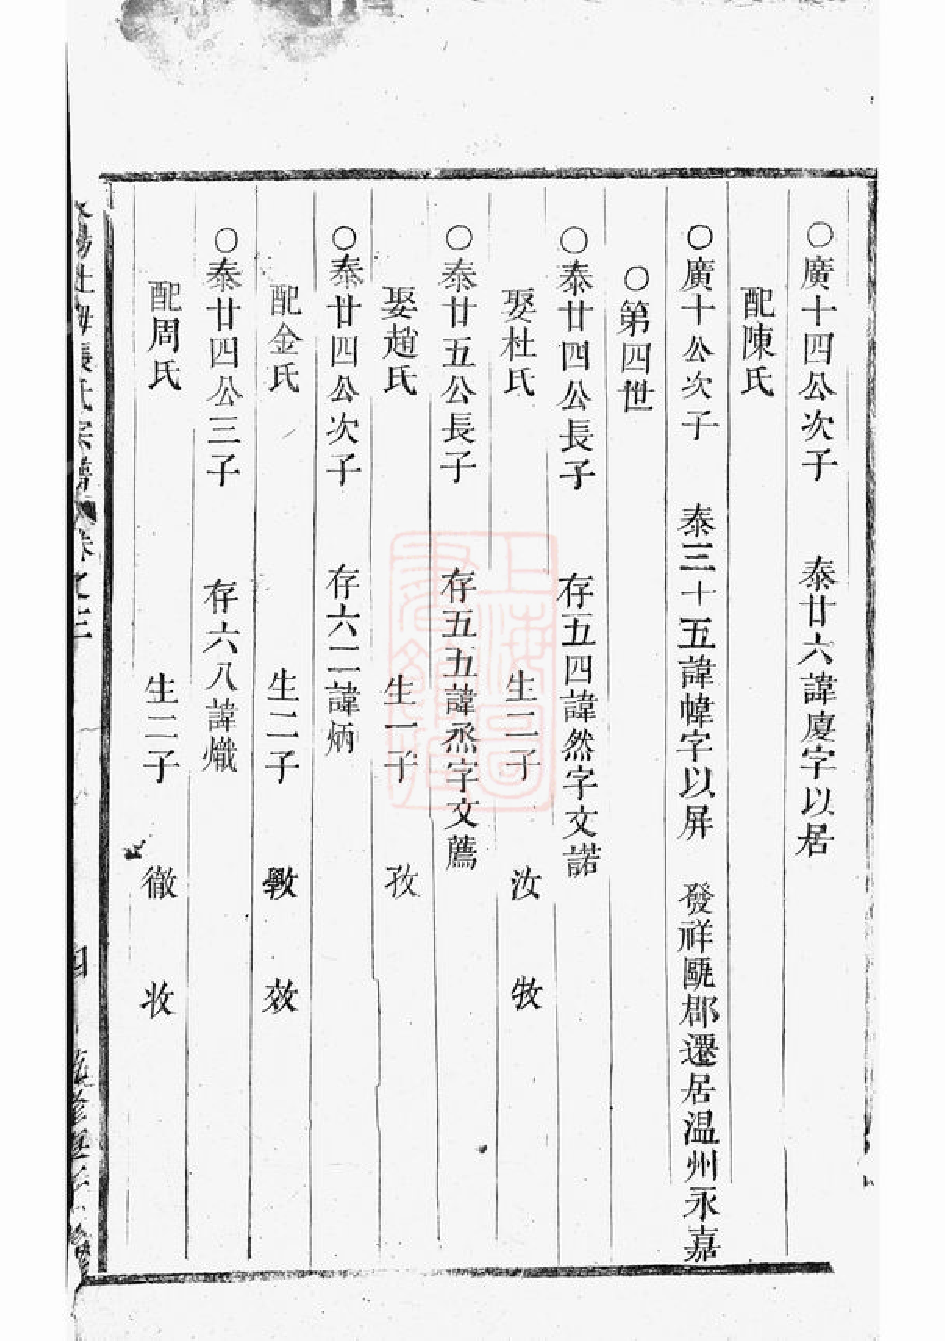 ○廣十四公次子　泰廿六諱廋字以居
配陳氏
○廣十公次子　泰三十五諱幃字以屏　發祥甌郡遷居温州永嘉
○第四世
○泰廿四公長子　存五四諱然字文諾
娶杜氏　生二子　汝　牧
○泰廿五公長子　存五五諱烝字文薦
娶趙氏　生一子　孜
○泰廿四公次子　存六二諱炳
配金氏　生二子　斅　效
○泰廿四公三子　存六八諱熾
配周氏　生二子　徹　收
張氏宗譜　卷之三
四
上海圖書館藏